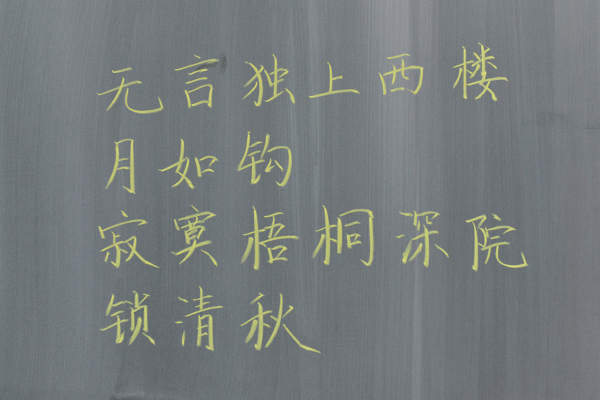 无言独上西楼
月如钩
寂寞梧桐深院
锁清秋